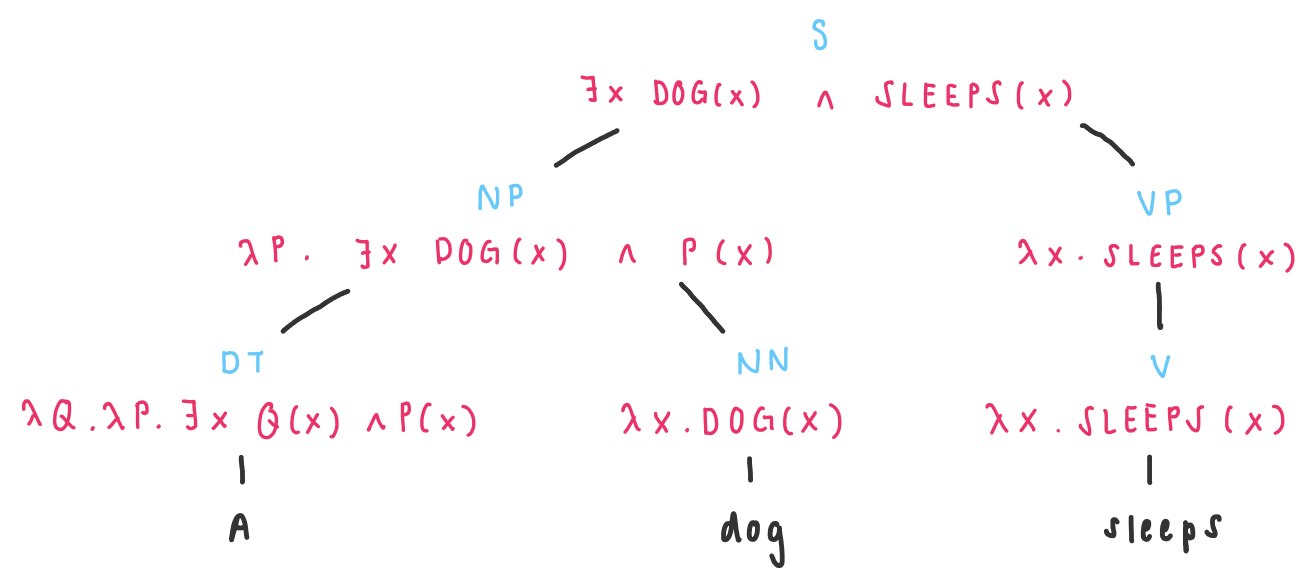 S
∃x DOG(x) ∧ SLEEPS(x)
NP VP
λP. ∃x DOG(x) ∧ P(x) λx. SLEEPS(x)
DT NN V
λQ.λP. ∃x Q(x) ∧ P(x) λx.DOG(x) λx. SLEEPS(x)
A dog sleeps